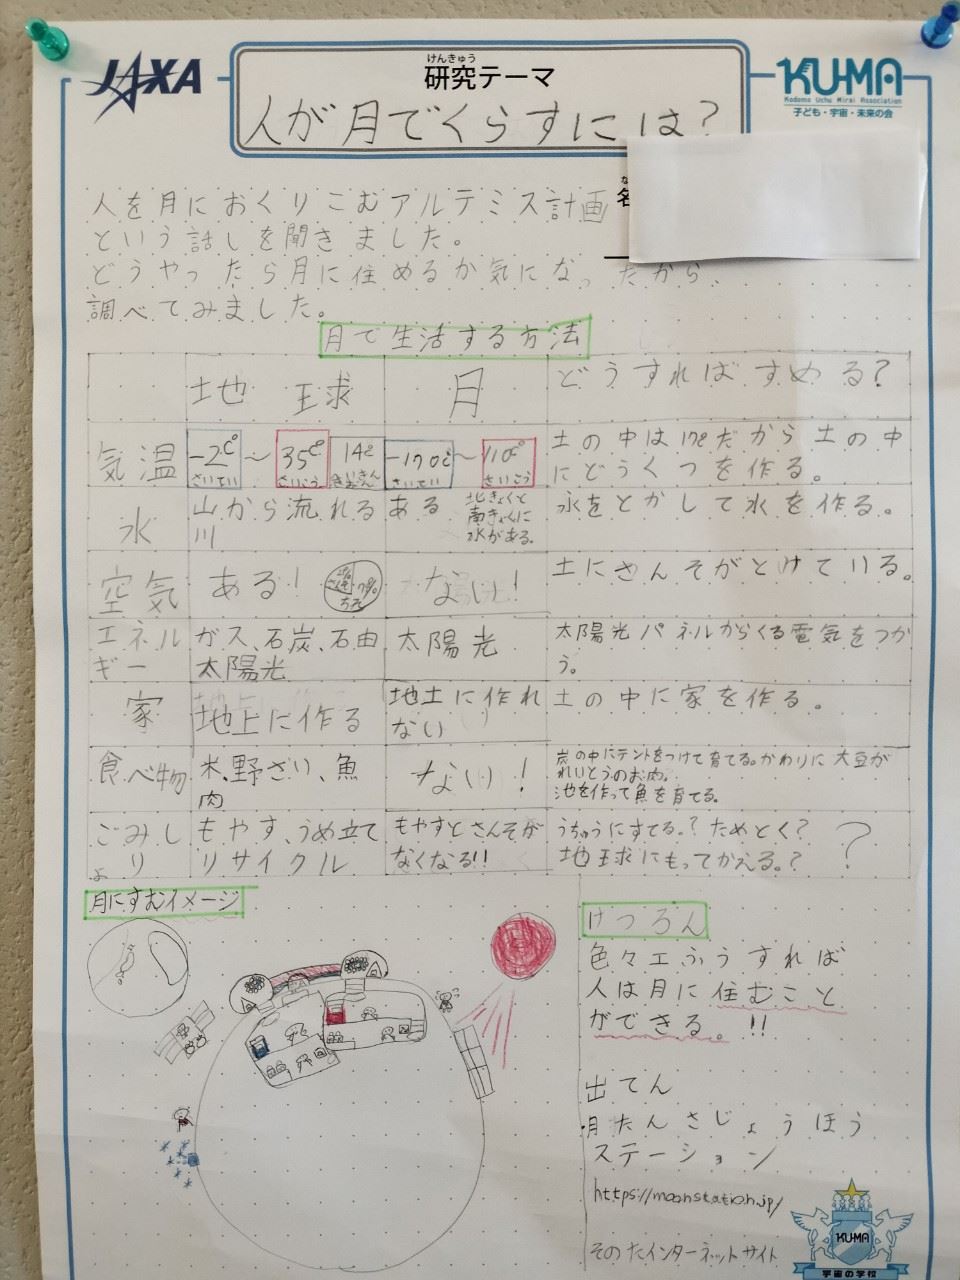 JAXA
けんきゅう
研究テーマ
KU-MA
Kodomo Uchu Mirai Association
子ども・宇宙・未来の会
人が月でくらすには?
人を月におくりこむアルテミス計画
という話しを聞きました。
どうやったら月に住めるか気になったから、
調べてみました。
月で生活する方法
地球 月 どうすればすめる?
気温 -2℃ さいてい ~ 35℃ さいこう 14℃ -170℃ さいてい ~ 110℃ さいこう 土の中は17℃だから土の中
にどうくつを作る。
水 山から流れる
川 ある 北きょくと
南きょくに
氷がある。 氷をとかして水を作る。
空気 ある! ない! 土にさんそがとけている。
エネル
ギー ガス、石炭、石由
太陽光 太陽光 太陽光パネルからくる電気をつか
う。
家 地上に作る 地土に作れ
ない 土の中に家を作る。
食べ物 米、野さい、魚
肉 ない! 中にテントをつけて育てる。かわりに大豆が
れいとうのお肉。
池を作って魚を育てる。
ごみしょ
り もやす、うめ立て
リサイクル もやすとさんそが
なくなる!! うちゅうにすてる。?ためとく?
地球にもってかえる。? ?
月にすむイメージ
けつろん
色々工ふうすれば
人は月に住むこと
ができる。!!
出てん
月たんさじょうほう
ステーション
https://moonstation.jp/
そのたインターネットサイト
KU-MA
宇宙の学校